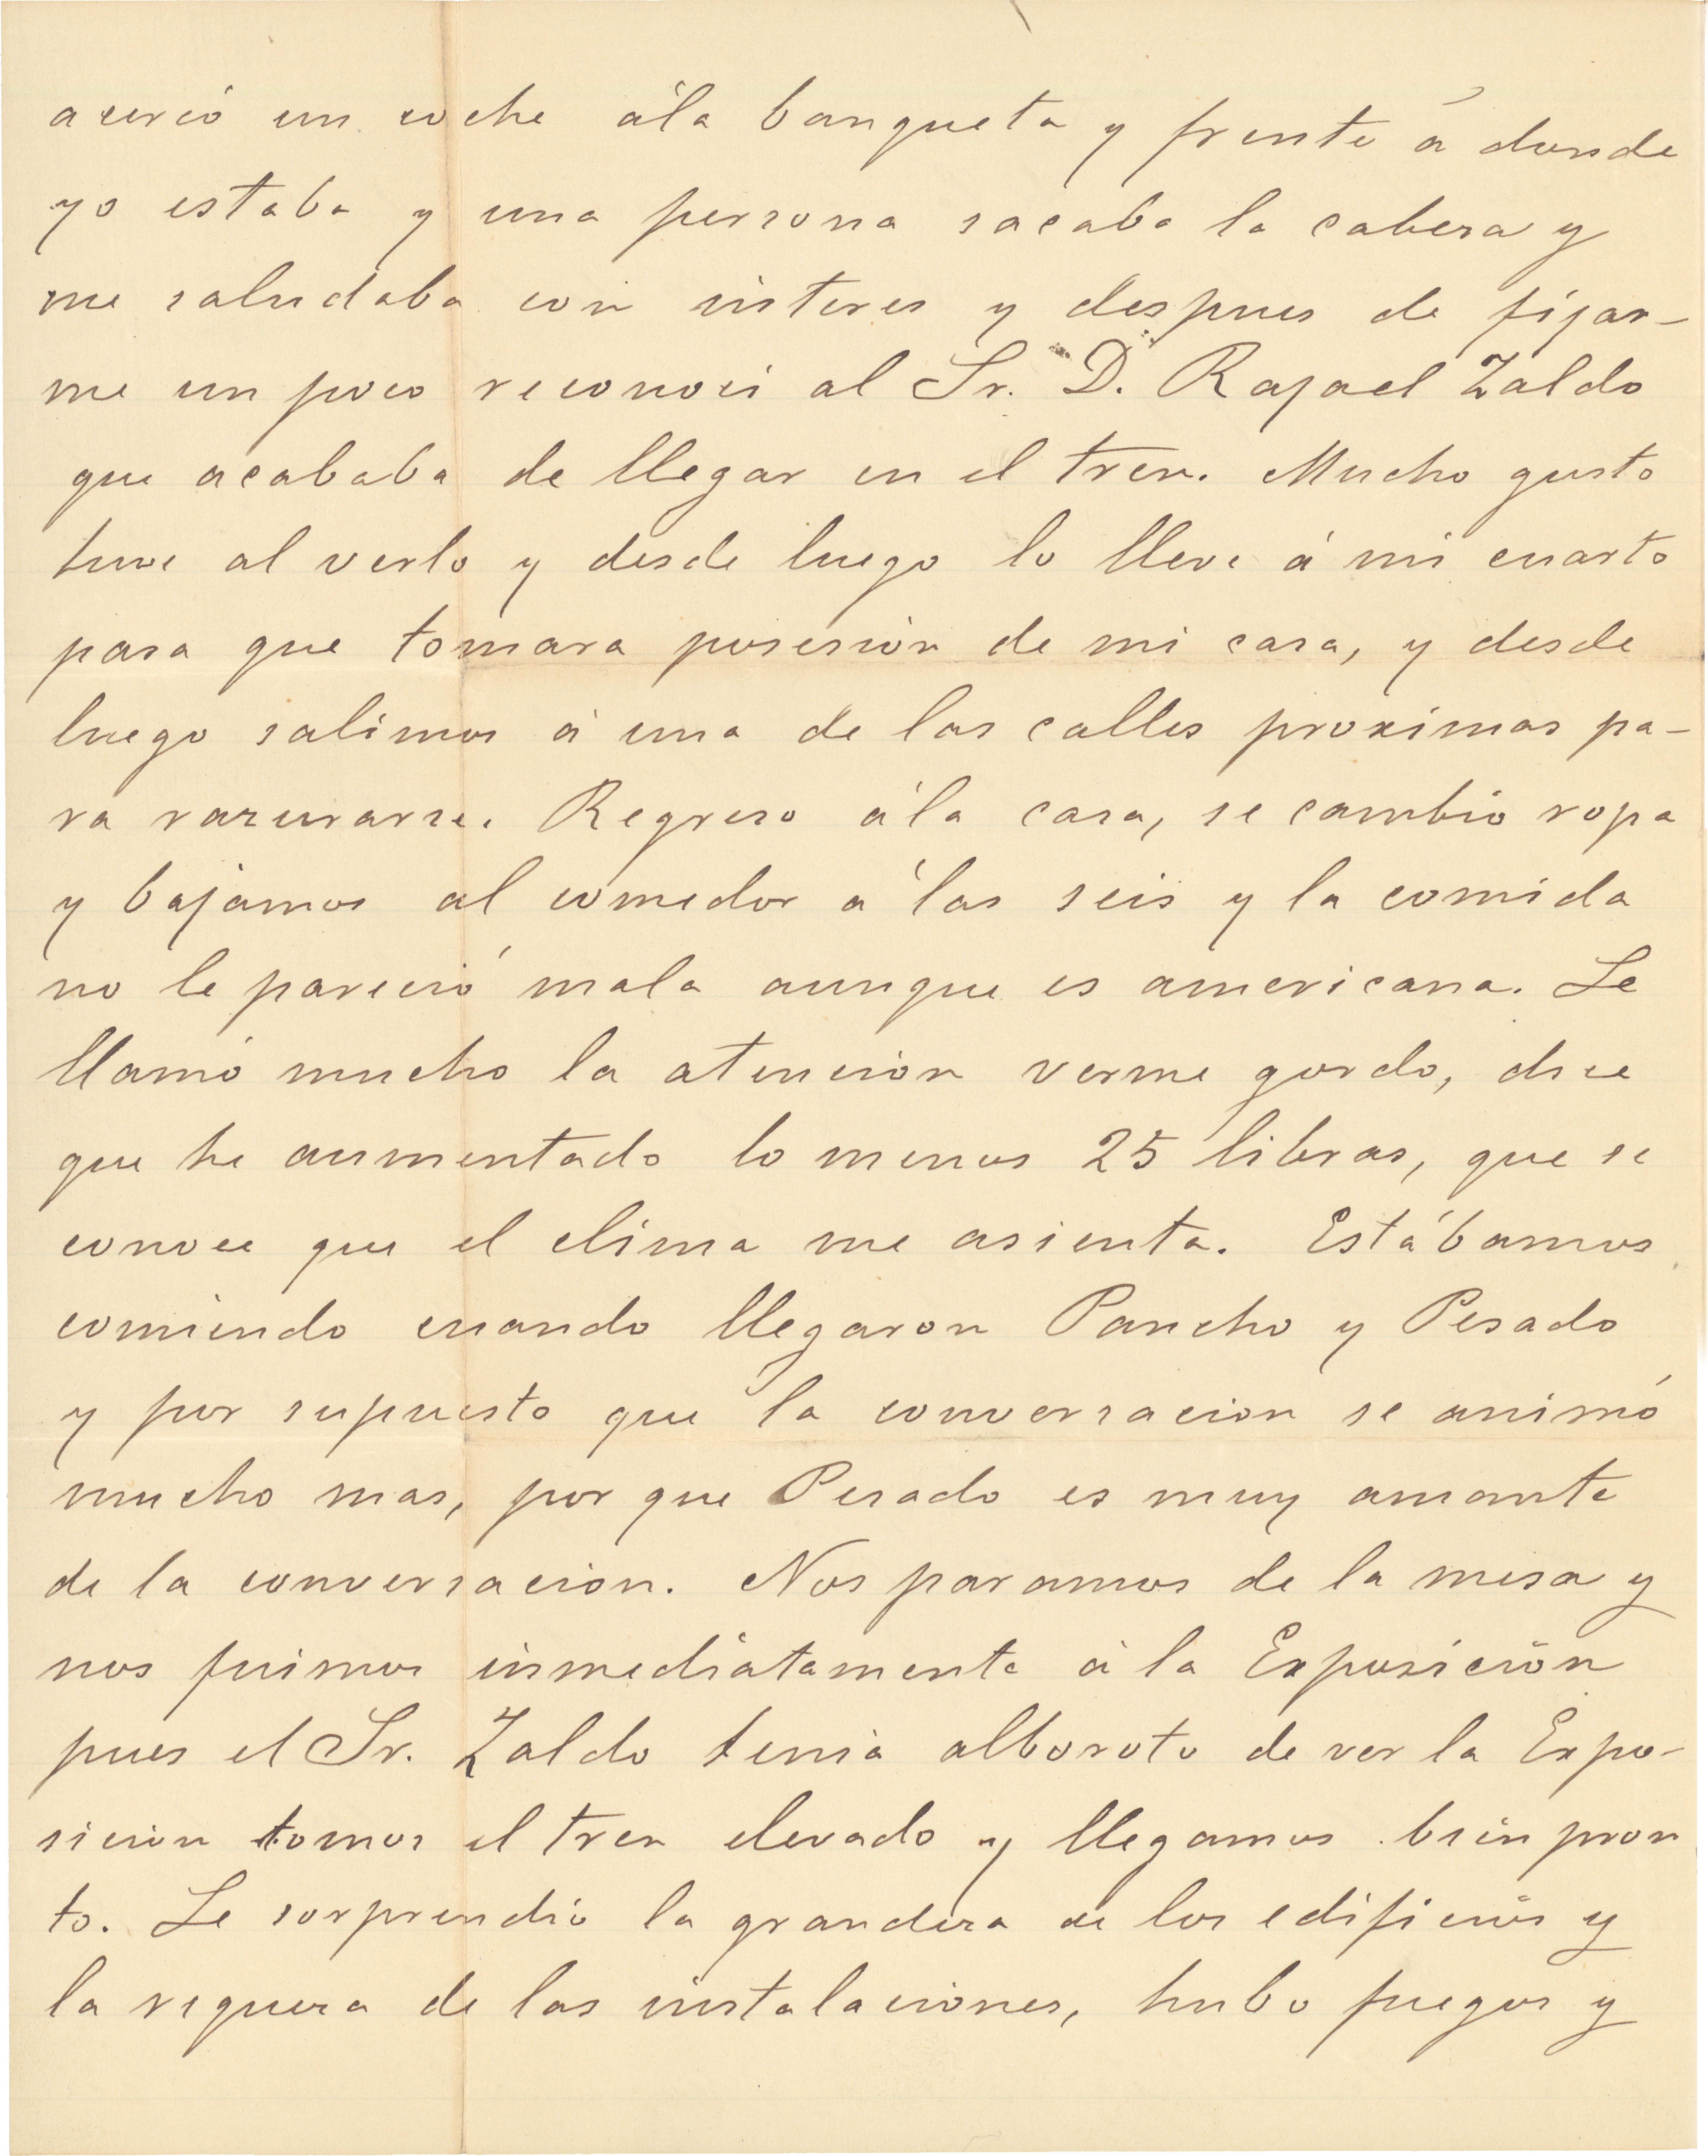 acercó un coche á la banqueta y frente á donde
yo estaba y una persona sacaba la cabesa y
me saludaba con interes y despues de fijar-
me un poco reconocí al Sr. D. Rafael Zaldo
que acababa de llegar en el tren. Mucho gusto
tuve al verlo y desde luego lo lleve á mi cuarto
para que tomara posesión de mi casa, y desde
luego salimos á una de las calles proximas pa-
ra razurarse. Regreso á la casa, se cambio ropa
y bajamos al comedor a las seis y la comida
no le pareció mala aunque es americana. Le
llamó mucho la atencion verme gordo, dice
que he aumentado lo menos 25 libras, que se
conoce que el clima me asienta. Estábamos
comiendo cuando llegaron Pancho y Pesado
y por supuesto que la conversacion se animó
mucho mas, por que Pesado es muy amante
de la conversacion. Nos paramos de la mesa y
nos fuimos inmediatamente á la Exposición
pues el Sr. Zaldo tenia alboroto de ver la Expo-
sicion tomos el tren elevado y llegamos bien pron
to. Le sorprendió la grandeza de los edificios y
la riqueza de las instalaciones, hubo fuegos y